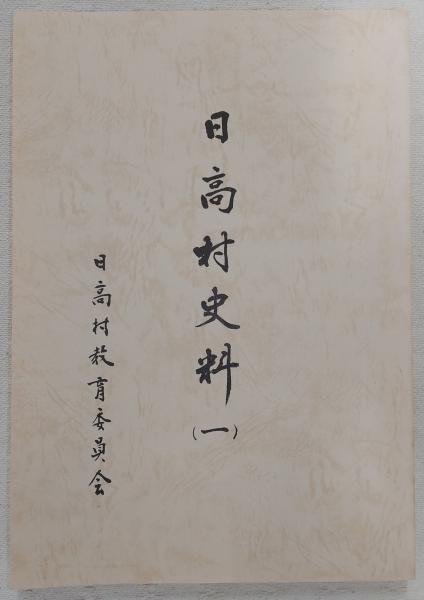 日高村史料(一)
日高村教育委員会